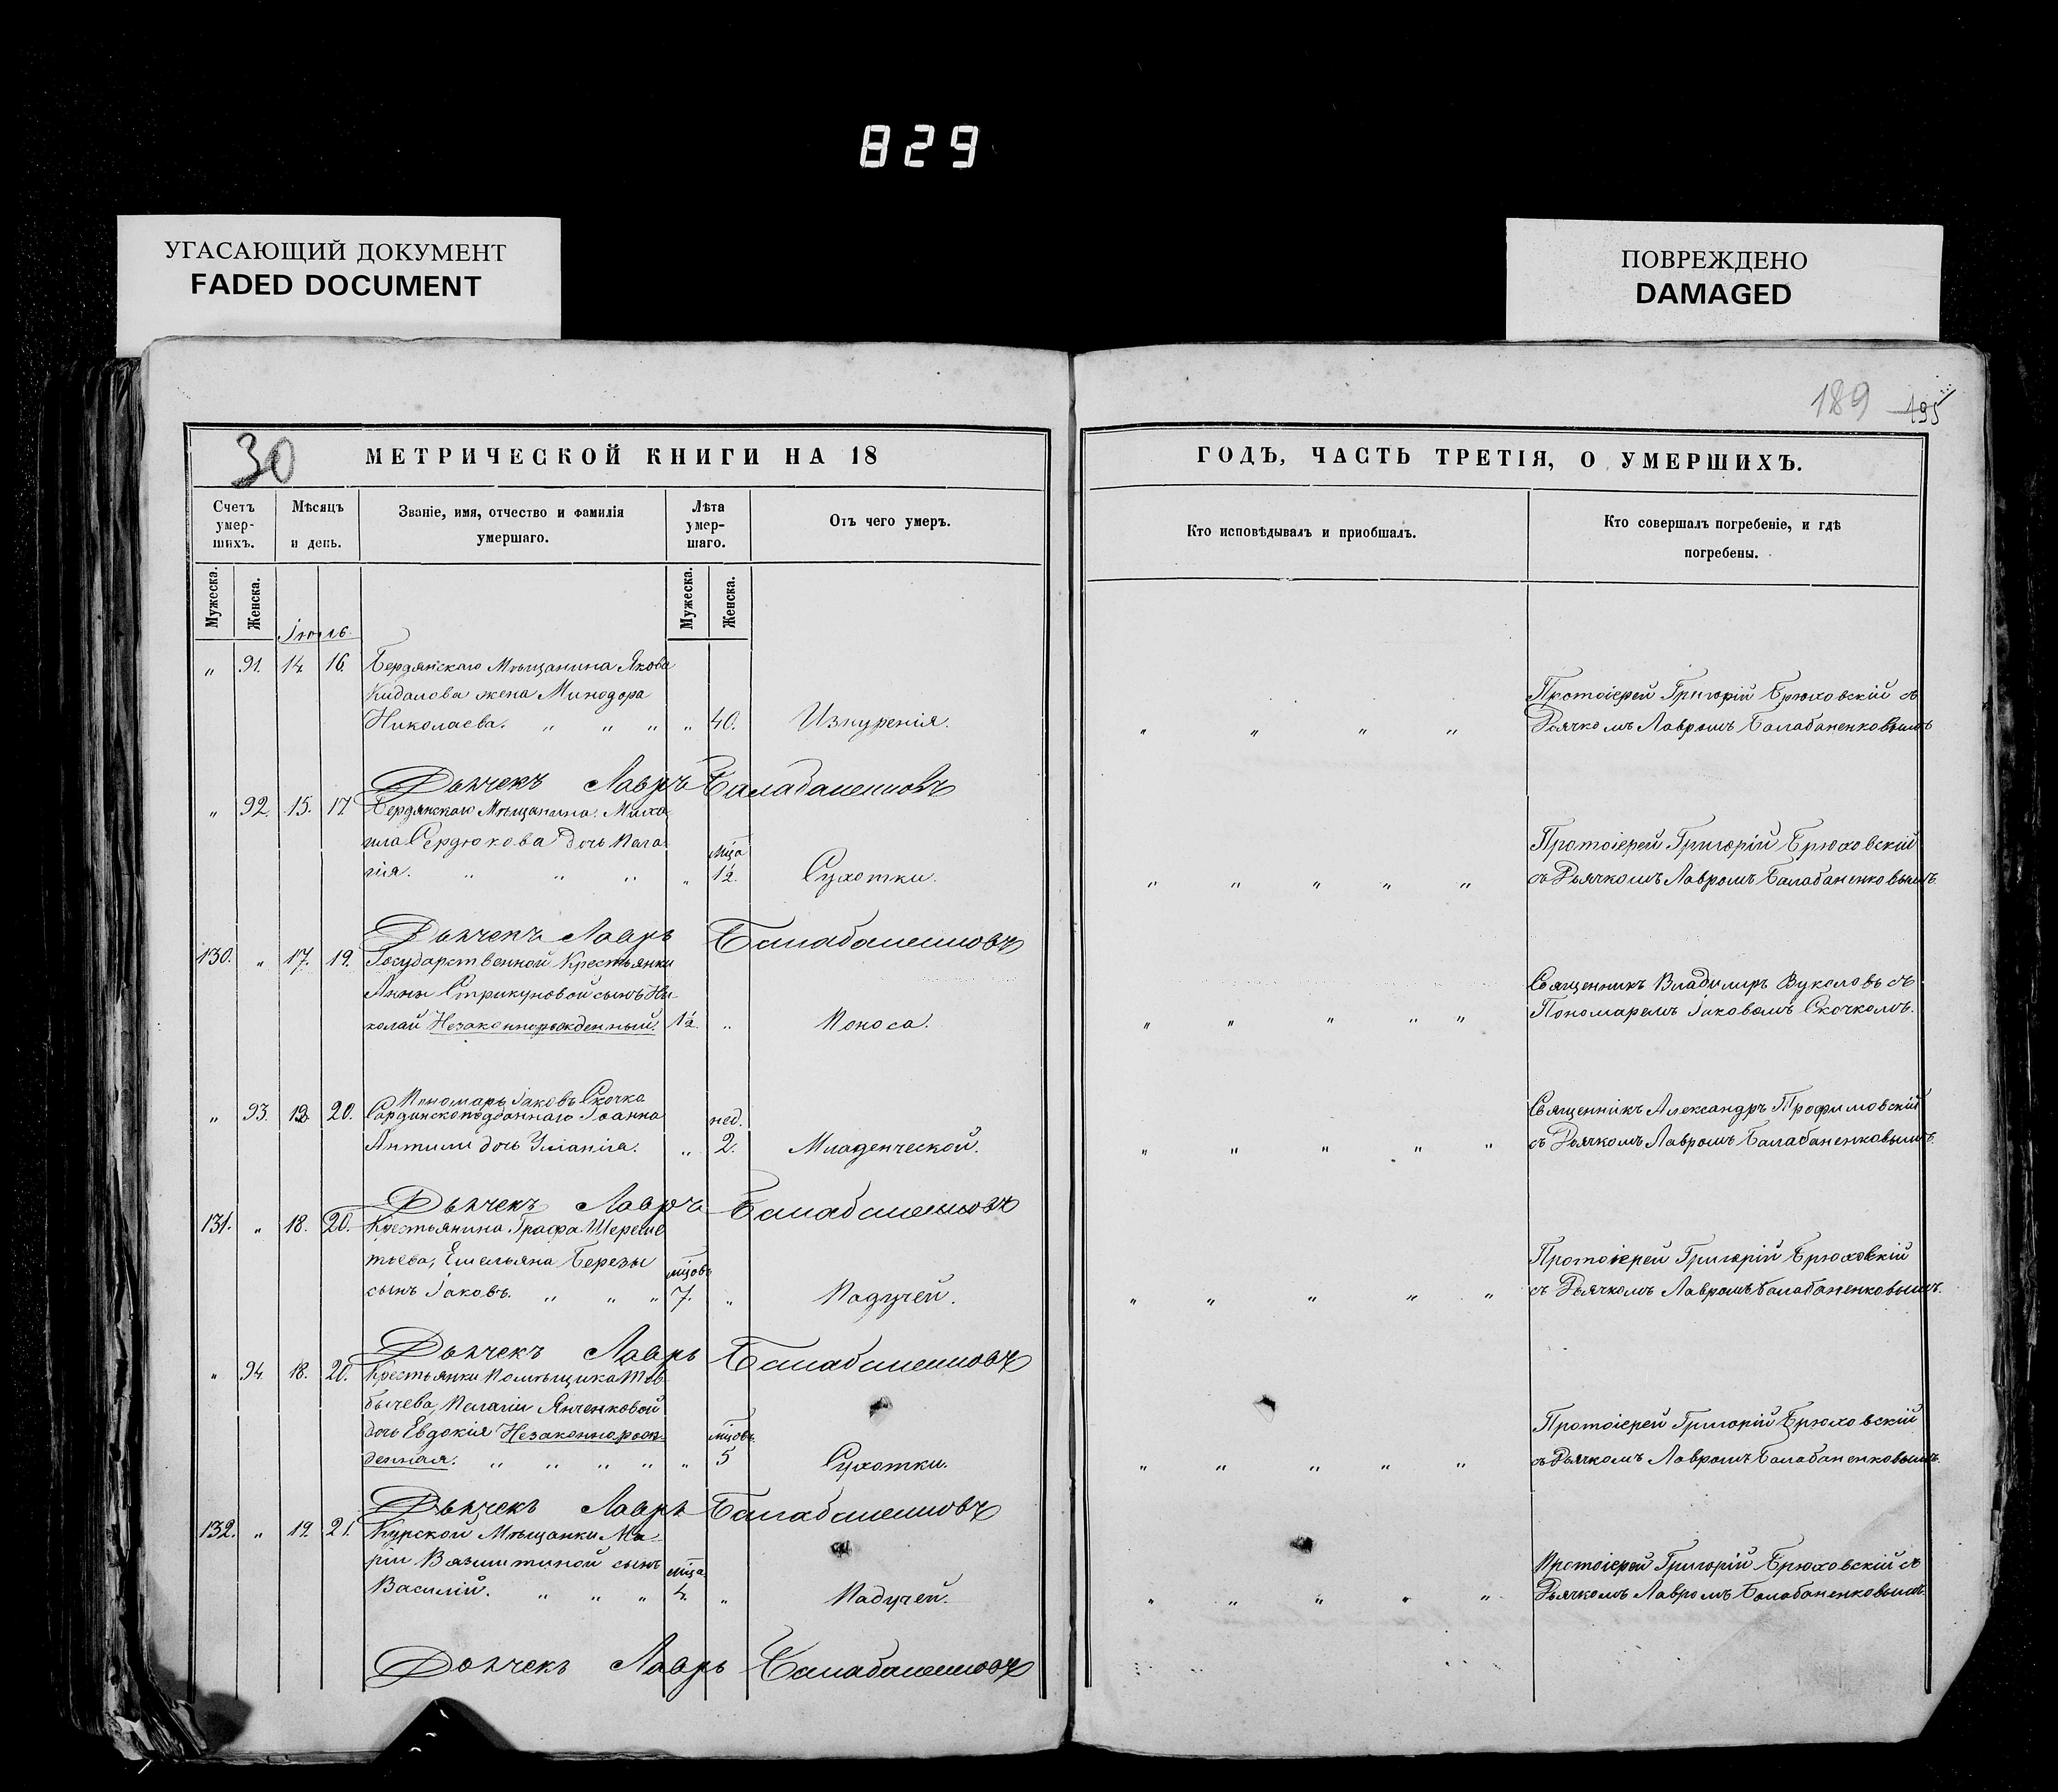 829
УГАСАЮЩИЙ ДОКУМЕНТ
FADED DOCUMENT
ПОВРЕЖДЕНО
DAMAGED
189 195
30 МЕТРИЧЕСКОЙ КНИГИ НА 18
ГОДЪ, ЧАСТЬ ТРЕТІЯ, О УМЕРШИХЪ.
Счетъ умер-шихъ.
Мѣсяцъ и день.
Званіе, имя, отчество и фамилія
умершаго.
Лѣта умер-шаго.
Отъ чего умеръ.
Кто исповѣдывалъ и приобшалъ.
Кто совершалъ погребеніе, и гдѣ
погребены.
Мужеска. Женска. Мужеска. Женска.
Іюль.
„ 91. 14 16. Бердянскаго Мѣщанина Якова
Кидалова жена Минодора
Николаева. „ „ „ „ 40. Изнуренія.
„ „ „ „
Протоіерей Григорій Брюховскій съ
Дьячкомъ Лавромъ Балабаненковымъ
Дьячекъ Лавръ Балабаненковъ
„ 92. 15. 17 Бердянскаго Мѣщанина Миха
ила Сердюкова дочь Пела
гія. „ „ „ „ мѣца 1½. Сухотки.
„ „ „ „ „
Протоіерей Григорій Брюховскій
съ Дьячкомъ Лавромъ Балабаненковымъ.
Дьячекъ Лавръ Балабаненковъ
130. „ 17. 19. Государственной Крестьянки
Анны Стрикуновой сынъ Ни-
колай Незаконнорожденный. 1½. „ Поноса.
„ „ „ „ „
Священникъ Владимиръ Вуколовъ съ
Пономаремъ Іаковомъ Скочкомъ.
Пономарь Іаковъ Скочка
„ 93. 18 20. Сардинскоподданнаго Іоанна
Антили дочь Уліанія. „ нед. 2. Младенческой.
„ „ „ „ „
Священникъ Александръ Трофимовскій
съ Дьячкомъ Лавромъ Балабаненковымъ.
Дьячекъ Лавръ Балабаненковъ
131. „ 18. 20. Крестьянина Графа Шереме
тьева, Емельяна Березы
сынъ Іаковъ. „ „ „ мѣцовъ 7. „ Падучей.
„ „ „ „ „
Протоіерей Григорій Брюховскій
съ Дьячкомъ Лавромъ Балабаненковымъ.
Дьячекъ Лавръ Балабаненковъ
„ 94. 18. 20. Крестьянки Помѣщика
Пелагіи Янченковой
дочь Евдокія Незаконнорож-
денная. „ „ „ „ „ мѣцовъ 5 Сухотки.
„ „ „ „ „
Протоіерей Григорій Брюховскій
съ Дьячкомъ Лавромъ Балабаненковымъ.
Дьячекъ Лавръ Балабаненковъ
132. „ 19. 21. Курской Мѣщанки Ма-
ріи Вязмитиной сынъ
Василій. „ „ „ мѣца 4. „ Падучей.
„ „ „ „ „
Протоіерей Григорій Брюховскій съ
Дьячкомъ Лавромъ Балабаненковымъ.
Дьячекъ Лавръ Балабаненковъ